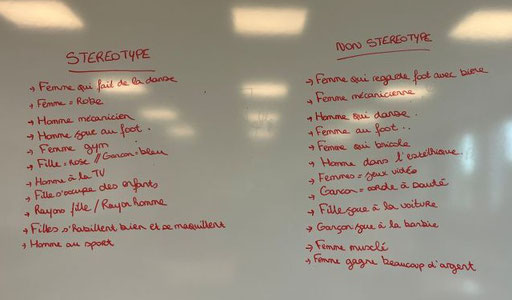 STEREOTYPE
→ Femme qui fait de la danse
→ Femme = Robe
→ Homme mécanicien
→ Homme joue au foot..
→ Femme gym
→ Fille = rose // Garçon = bleu
→ Homme à la TV
→ Fille s'occupe des enfants
→ Rayon fille / Rayon homme
→ Filles s'habillent bien et se maquillent
→ Homme au sport
NON STEREOTYPE
→ Femme qui regarde foot avec bière
→ Femme mécanicienne
→ Homme qui danse.
→ Femme au foot..
→ Femme qui bricole
→ Homme dans l'esthétique.
→ Femmes = jeux vidéo
→ Garçon = corde à sauté
→ Fille joue à la voiture
→ Garçon joue à la barbie
→ Femme musclé
→ Femme gagne beaucoup d'argent